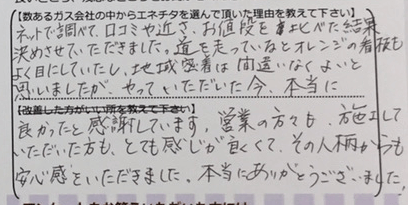 【数あるガス会社の中からエネチタを選んで頂いた理由を教えて下さい】
ネットで調べて、口コミや近さ、お値段を比べた結果
決めさせていただきました。道を走っているとオレンジの看板も
よく目にしていたし、地域密着は間違いなくよいと
思いましたが、やっていただいた今、本当に
【改善した方がいい所を教えて下さい】
良かったと感謝しています。営業の方々も、施工して
いただいた方も、とても感じが良くて、その人柄からも
安心感をいただきました。本当にありがとうございました。